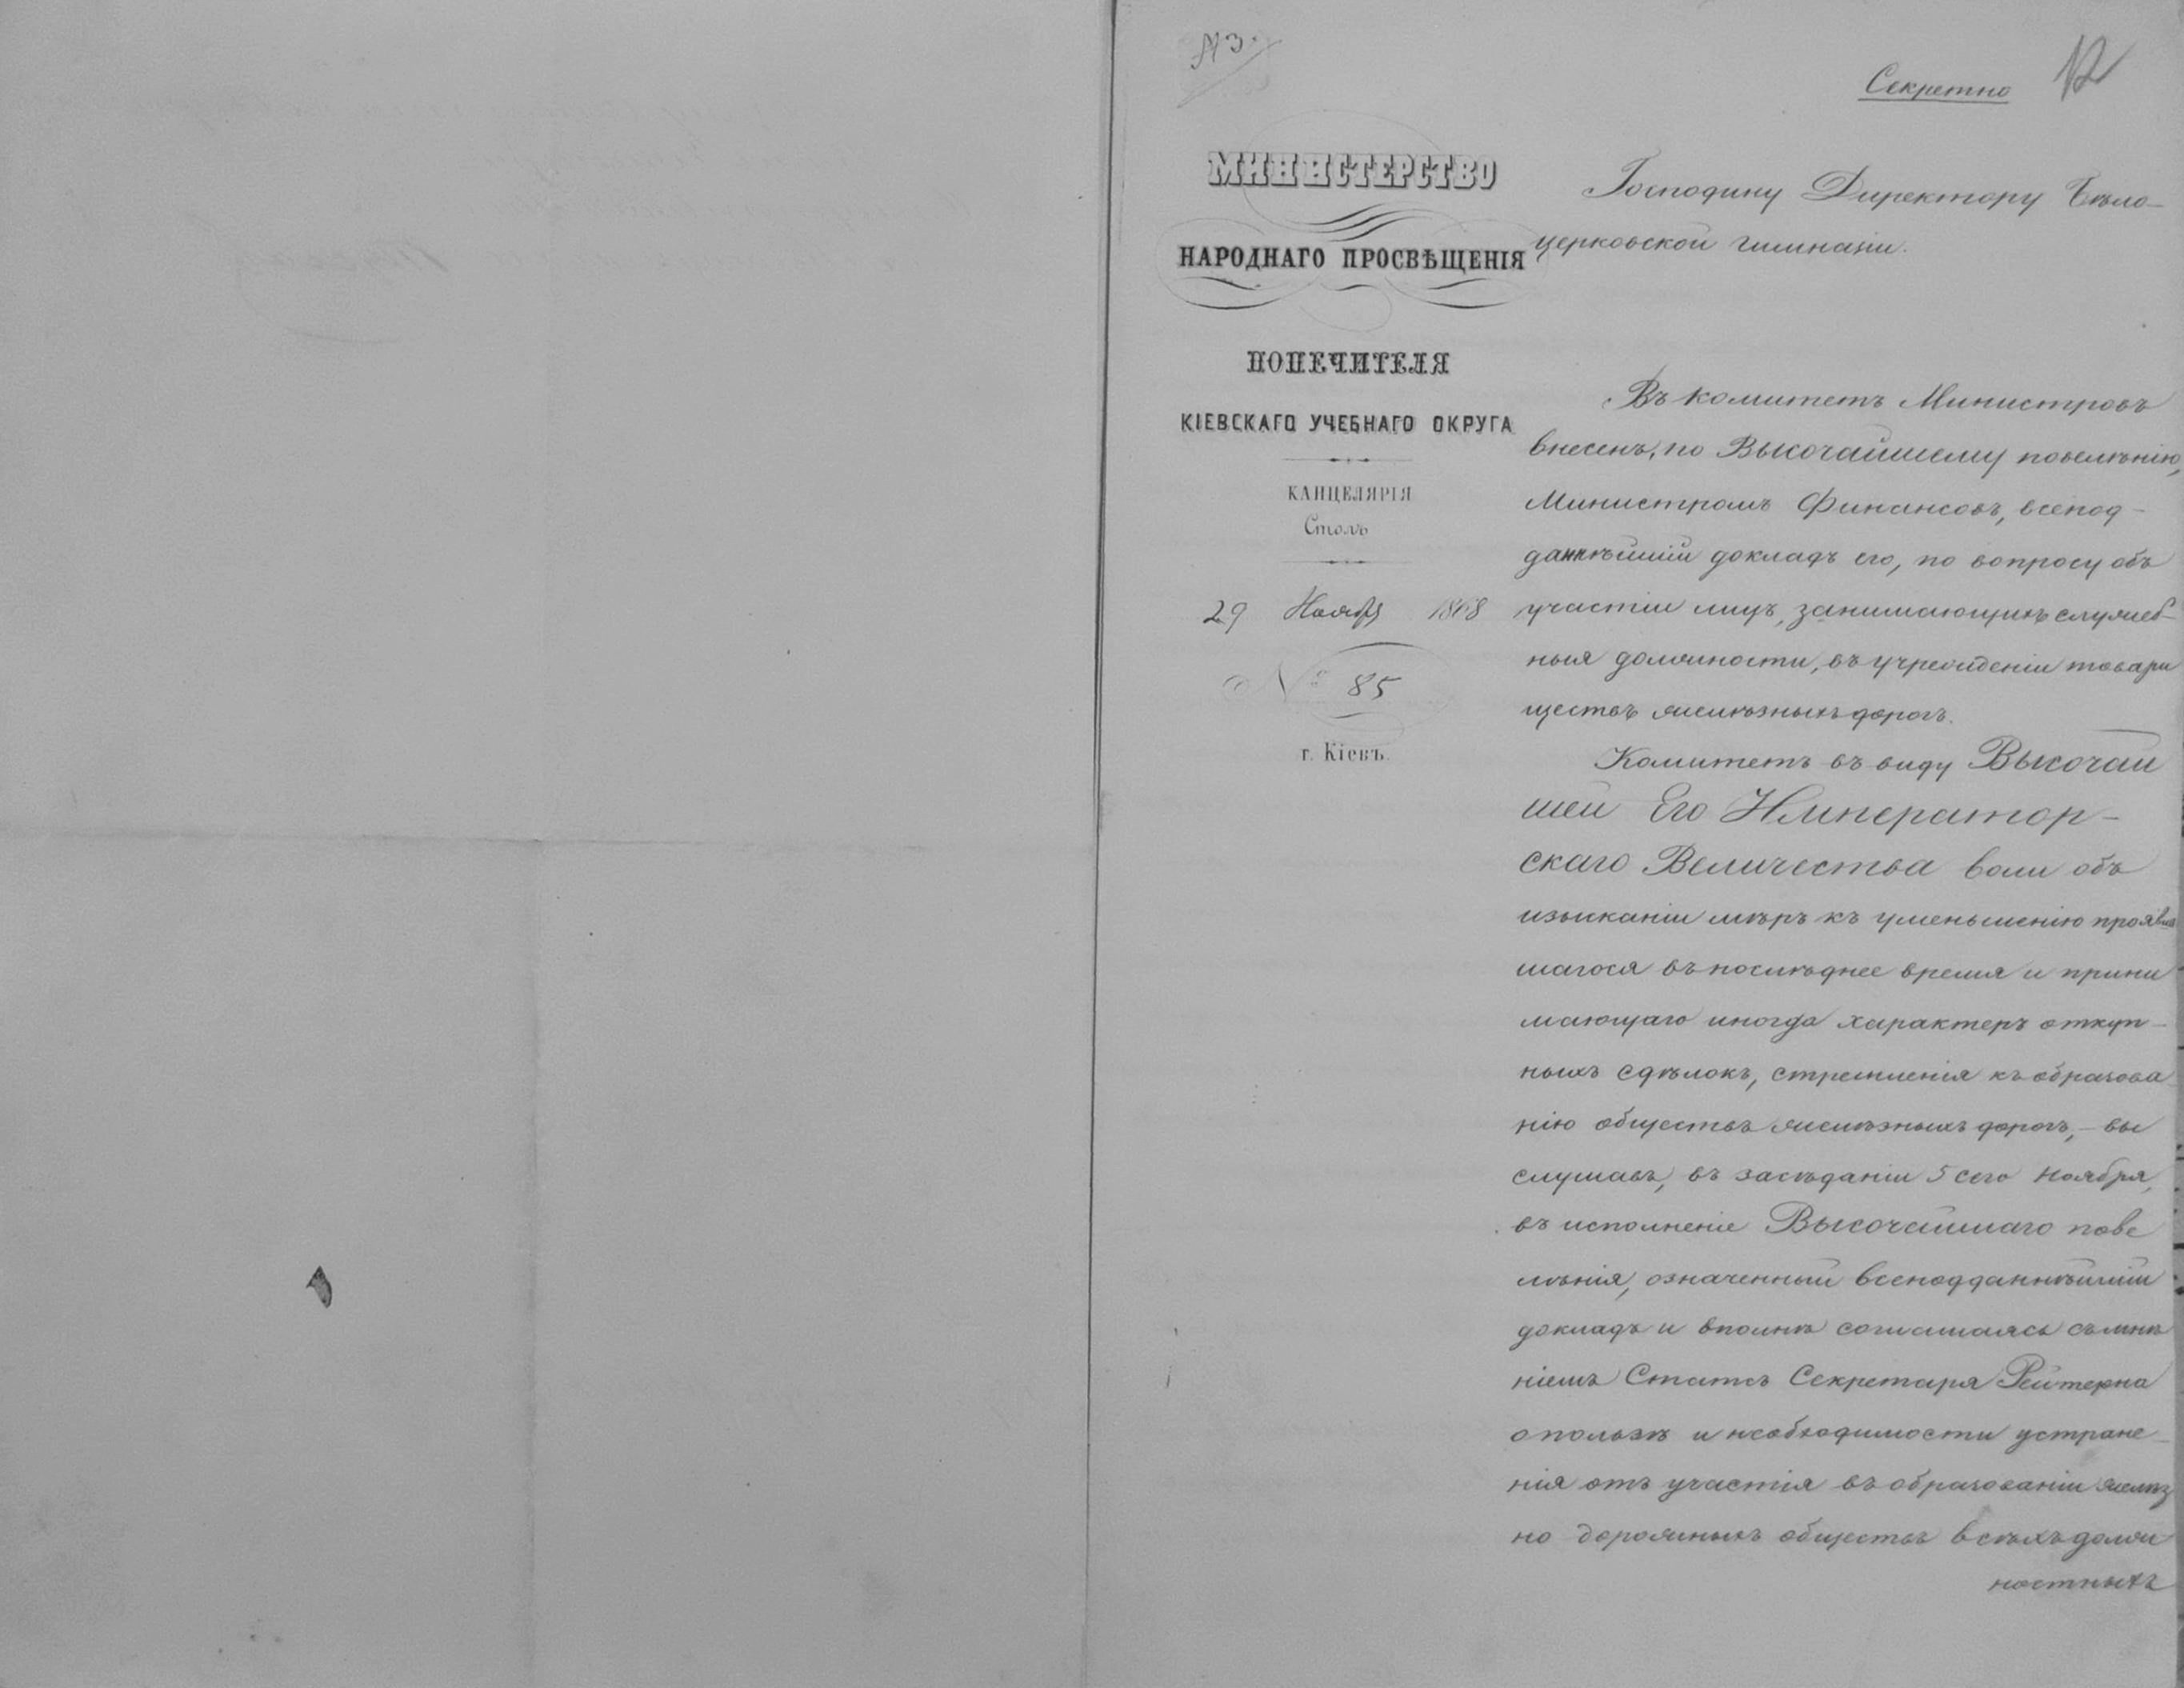 № 3.
Секретно 12
МИНИСТЕРСТВО
НАРОДНАГО ПРОСВѢЩЕНІЯ
ПОПЕЧИТЕЛЯ
КІЕВСКАГО УЧЕБНАГО ОКРУГА
КАНЦЕЛЯРІЯ
Столъ
29 Ноября 1868
№ 85
г. Кіевъ.
Господину Директору Бѣло-
церковской гимназіи.
Въ комитетъ Министровъ
внесенъ, по Высочайшему повелѣнію,
Министромъ Финансовъ, всепод-
даннѣйшій докладъ его, по вопросу объ
участіи лицъ, занимающихъ служеб-
ныя должности, въ учрежденіи товари
ществъ желѣзныхъ дорогъ.
Комитетъ въ виду Высочай
шей Его Император-
скаго Величества воли объ
изысканіи мѣръ къ уменьшенію проявив
шагося въ послѣднее время и прини
мающаго иногда характеръ откуп-
ныхъ сдѣлокъ, стремленія къ образова
нію обществъ желѣзныхъ дорогъ,- вы
слушавъ, въ засѣданіи 5 сего Ноября,
въ исполненіе Высочайшаго пове
лѣнія, означенный всеподданнѣйшій
докладъ и вполнѣ соглашаясь съ мнѣ
ніемъ Статсъ Секретаря Рейтерна
о пользѣ и необходимости устране-
нія отъ участія въ образованіи желѣз
но дорожныхъ обществъ всѣхъ долж
ностныхъ